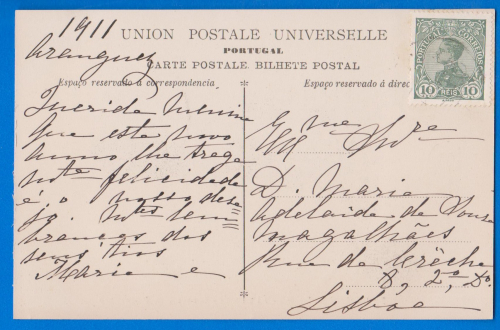 1911
Aranguez
UNION POSTALE UNIVERSELLE
PORTUGAL
CARTE POSTALE. BILHETE POSTAL
Espaço reservado á correspondencia
Espaço reservado á direc
PORTUGAL CORREIOS
10 REIS 10
Querida Menina
Que este novo
anno lhe traga
mta felicidade
é o nosso dese=
jo. Mtas lem=
branças dos
seus tios
Maria e
Exma Snra
D. Maria
Adelaide de Sousa
Magalhães
Rua da Créche
8, 2º, Do.
Lisboa